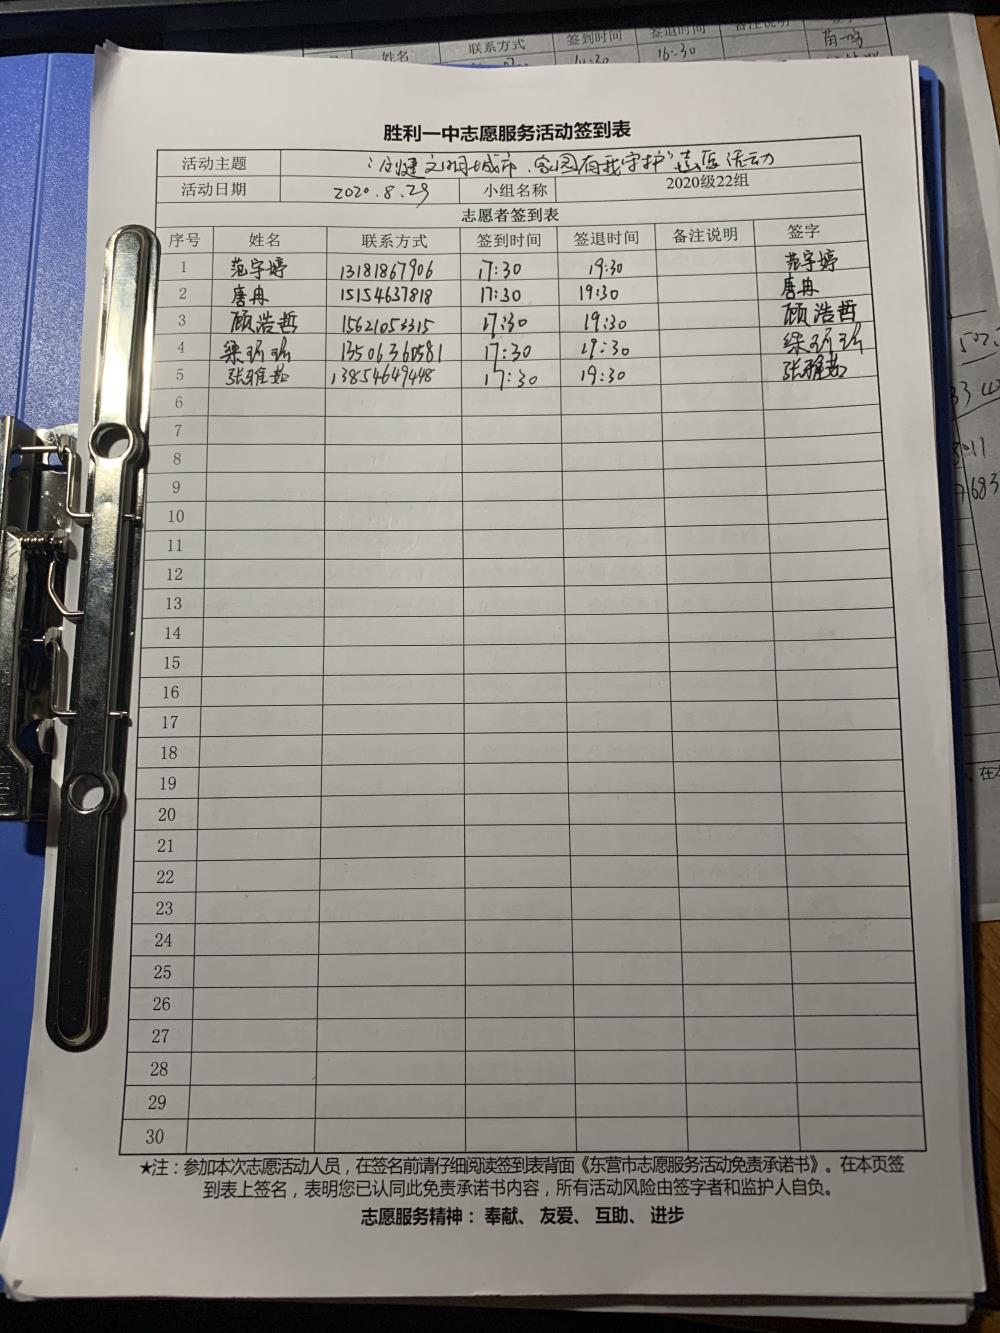 姓名 联系方式 签到时间 签退时间 备注说明
16:30
胜利一中志愿服务活动签到表
活动主题 "创建文明城市、家园有我守护"志愿活动
活动日期 2020.8.29 小组名称 2020级22组
志愿者签到表
序号 姓名 联系方式 签到时间 签退时间 备注说明 签字
1 范宇婷 13181867906 17:30 19:30 范宇婷
2 唐冉 15154637818 17:30 19:30 唐冉
3 顾浩哲 15621053315 17:30 19:30 顾浩哲
4 梁 13506360581 17:30 19:30 梁
5 张雅茹 13854649448 17:30 19:30 张雅茹
6
7
8
9
10
11
12
13
14
15
16
17
18
19
20
21
22
23
24
25
26
27
28
29
30
★注：参加本次志愿活动人员，在签名前请仔细阅读签到表背面《东营市志愿服务活动免责承诺书》。在本页签
到表上签名，表明您已认同此免责承诺书内容，所有活动风险由签字者和监护人自负。
志愿服务精神：奉献、友爱、互助、进步